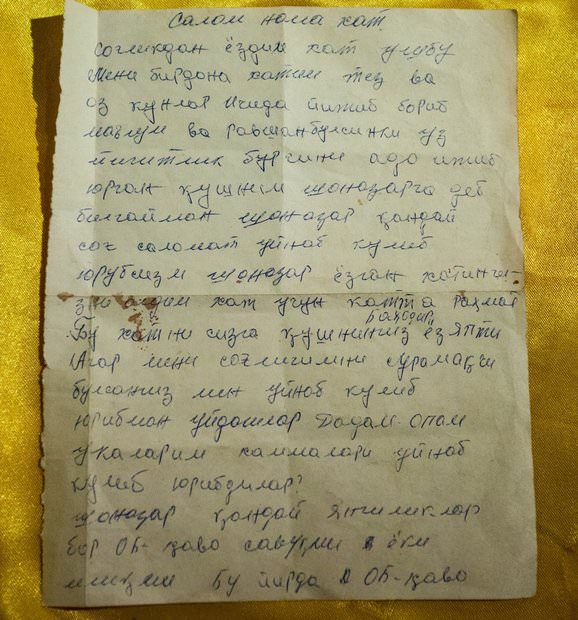 Салом нома хат.
Соғликдан ёздим хат ушбу
Мени бирдона хатим тез ва
оз кунлар ичида йижиб бориб
маълум ва равшан булсинки уз
йигитлик бурчини адо ижиб
юрган қушнам шоназарга деб
билгайман шоназар қандай
соғ саломат уйноб кулиб
юрубсизм шоназар ёзган хатинги-
хат учун катта рахмат
Бу хатни сизга қушнингиз ёзяпти
Агар мени соғлигимни сурамақчи
булсангиз мин уйноб кулиб
юрибман уйдошлар Дадам-опам
укаларим хаммалари уйноб
кулиб юрибдилар?
шоназар қандай янгиликлар
бор ОБ-ҳаво савуқми ёки
иссиқми Бу йирда ОБ-ҳаво